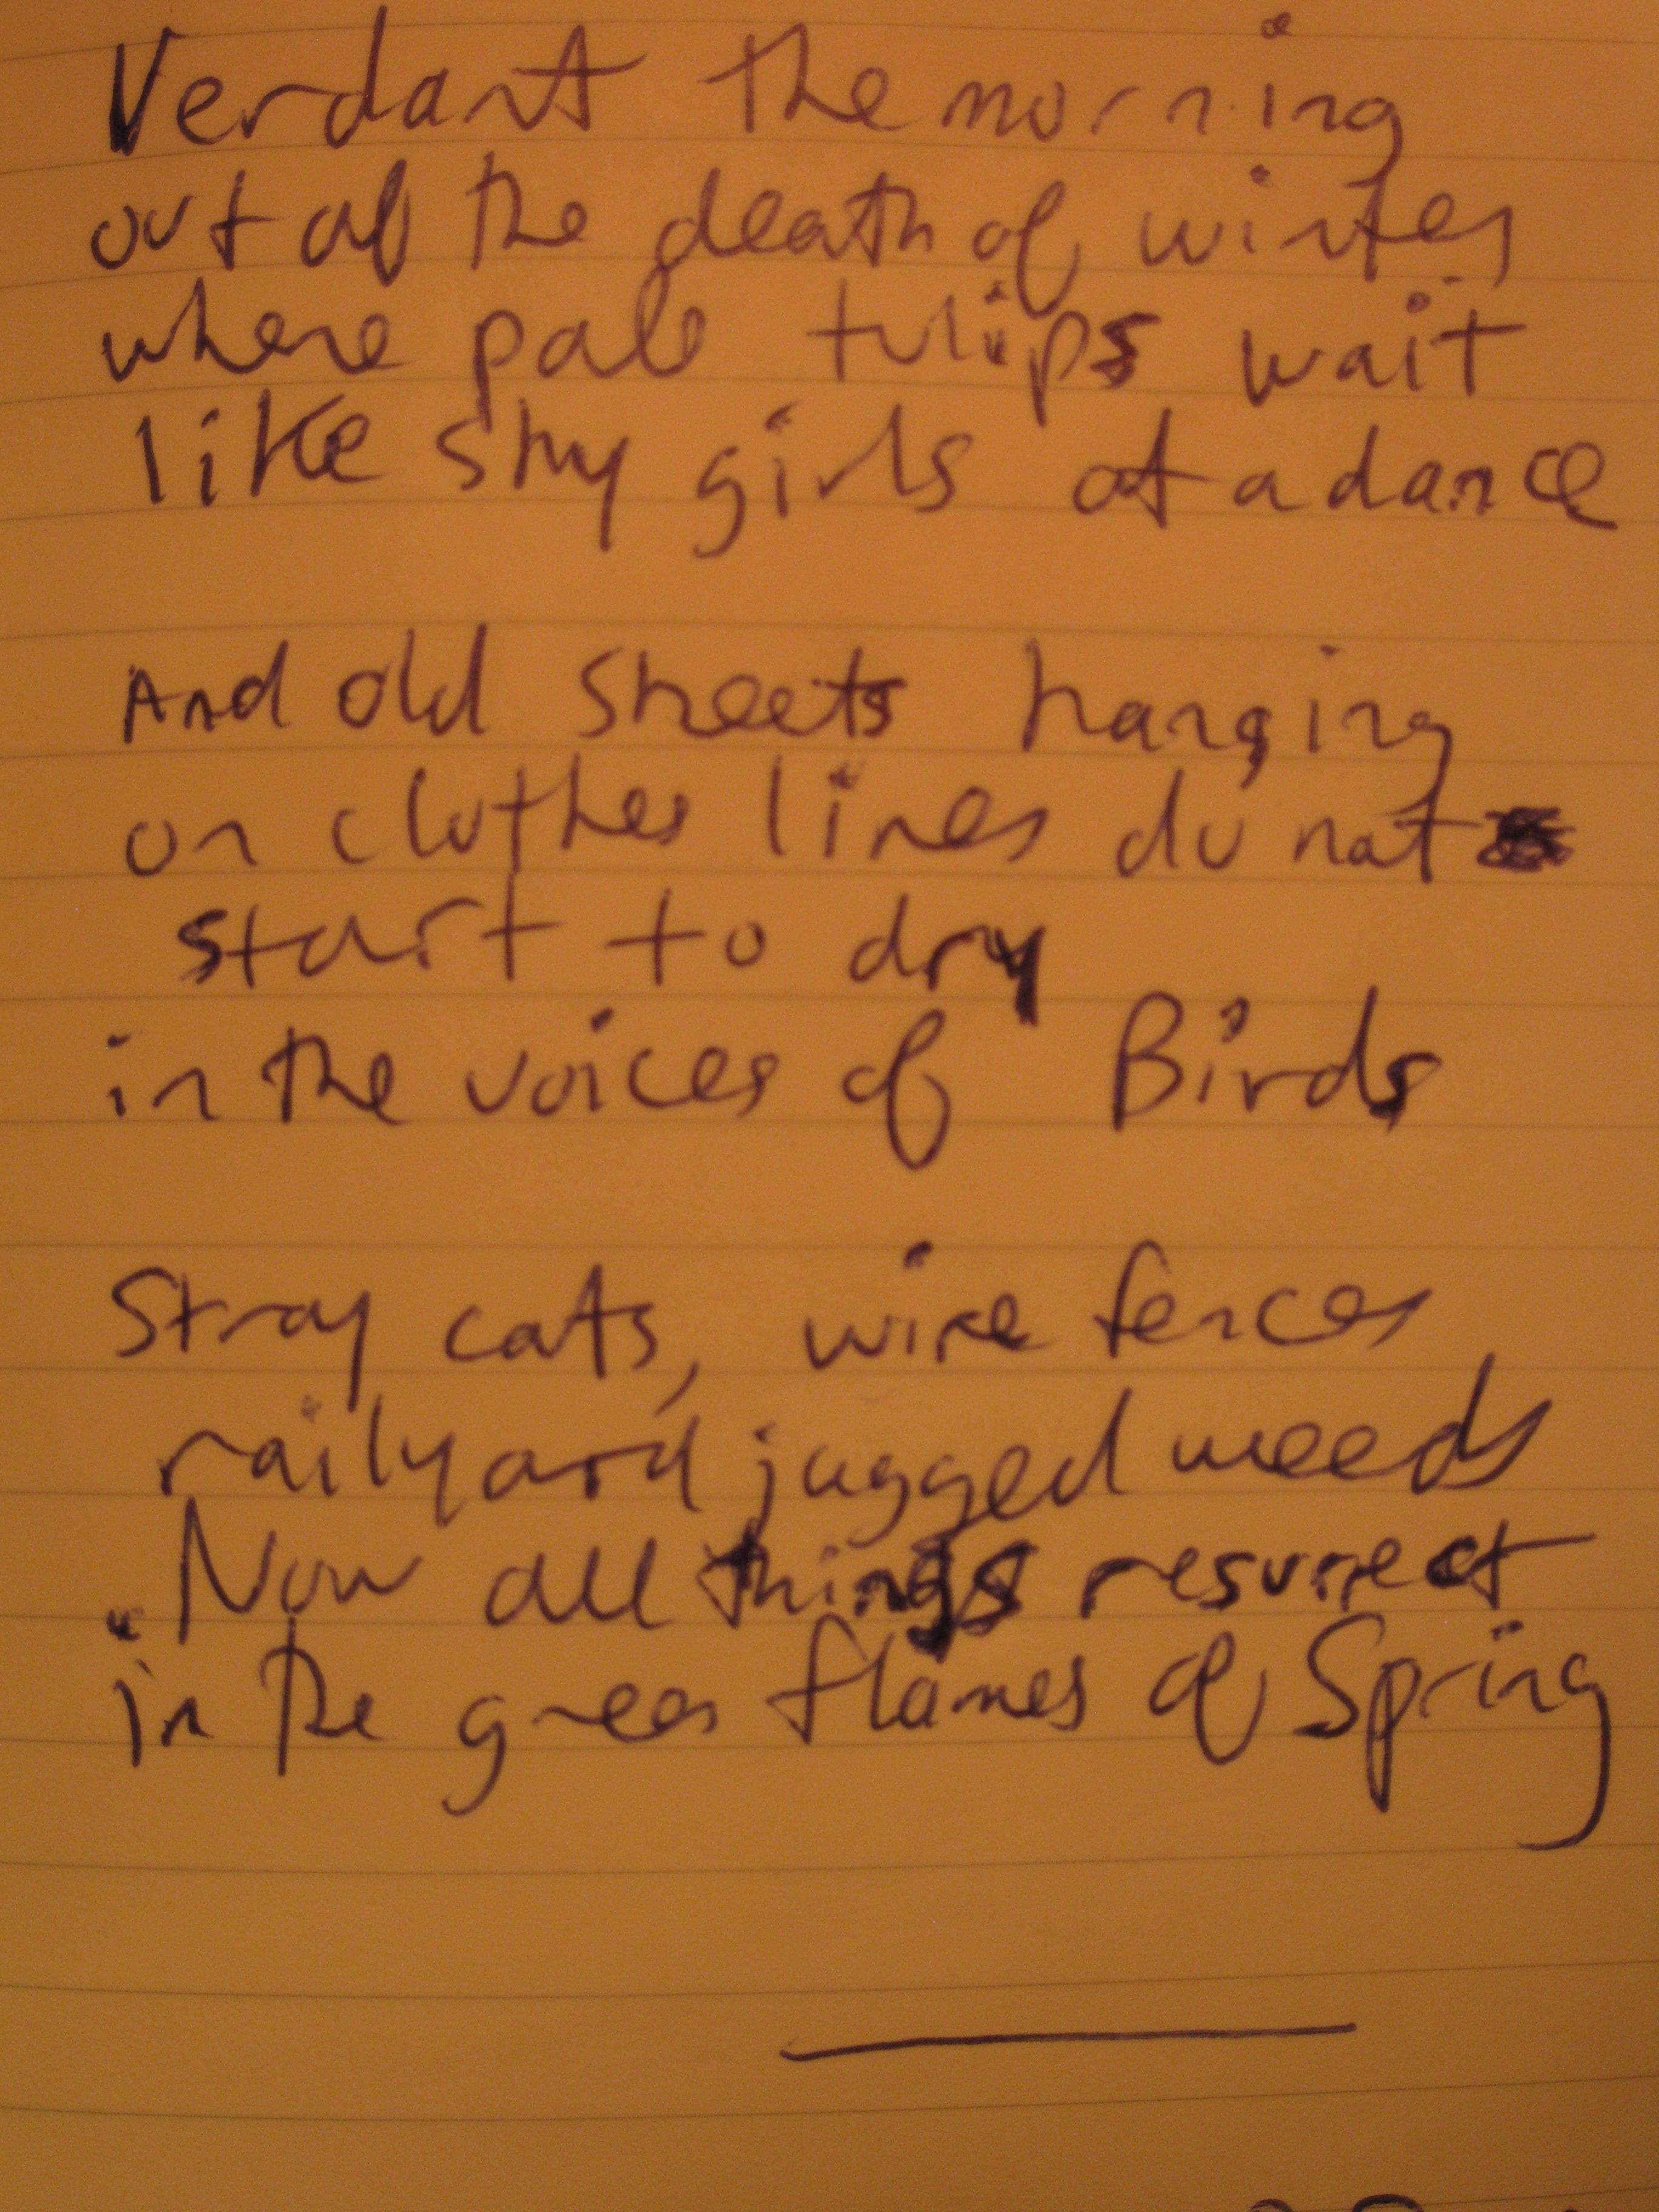 Verdant the morning
out of the death of winter
where pale tulips wait
like shy girls at a dance
And old sheets hanging
on clothes lines do not
start to dry
in the voices of Birds
Stray cats, wire fences
railyard jagged weeds
Now all things resurrect
in the green flames of Spring